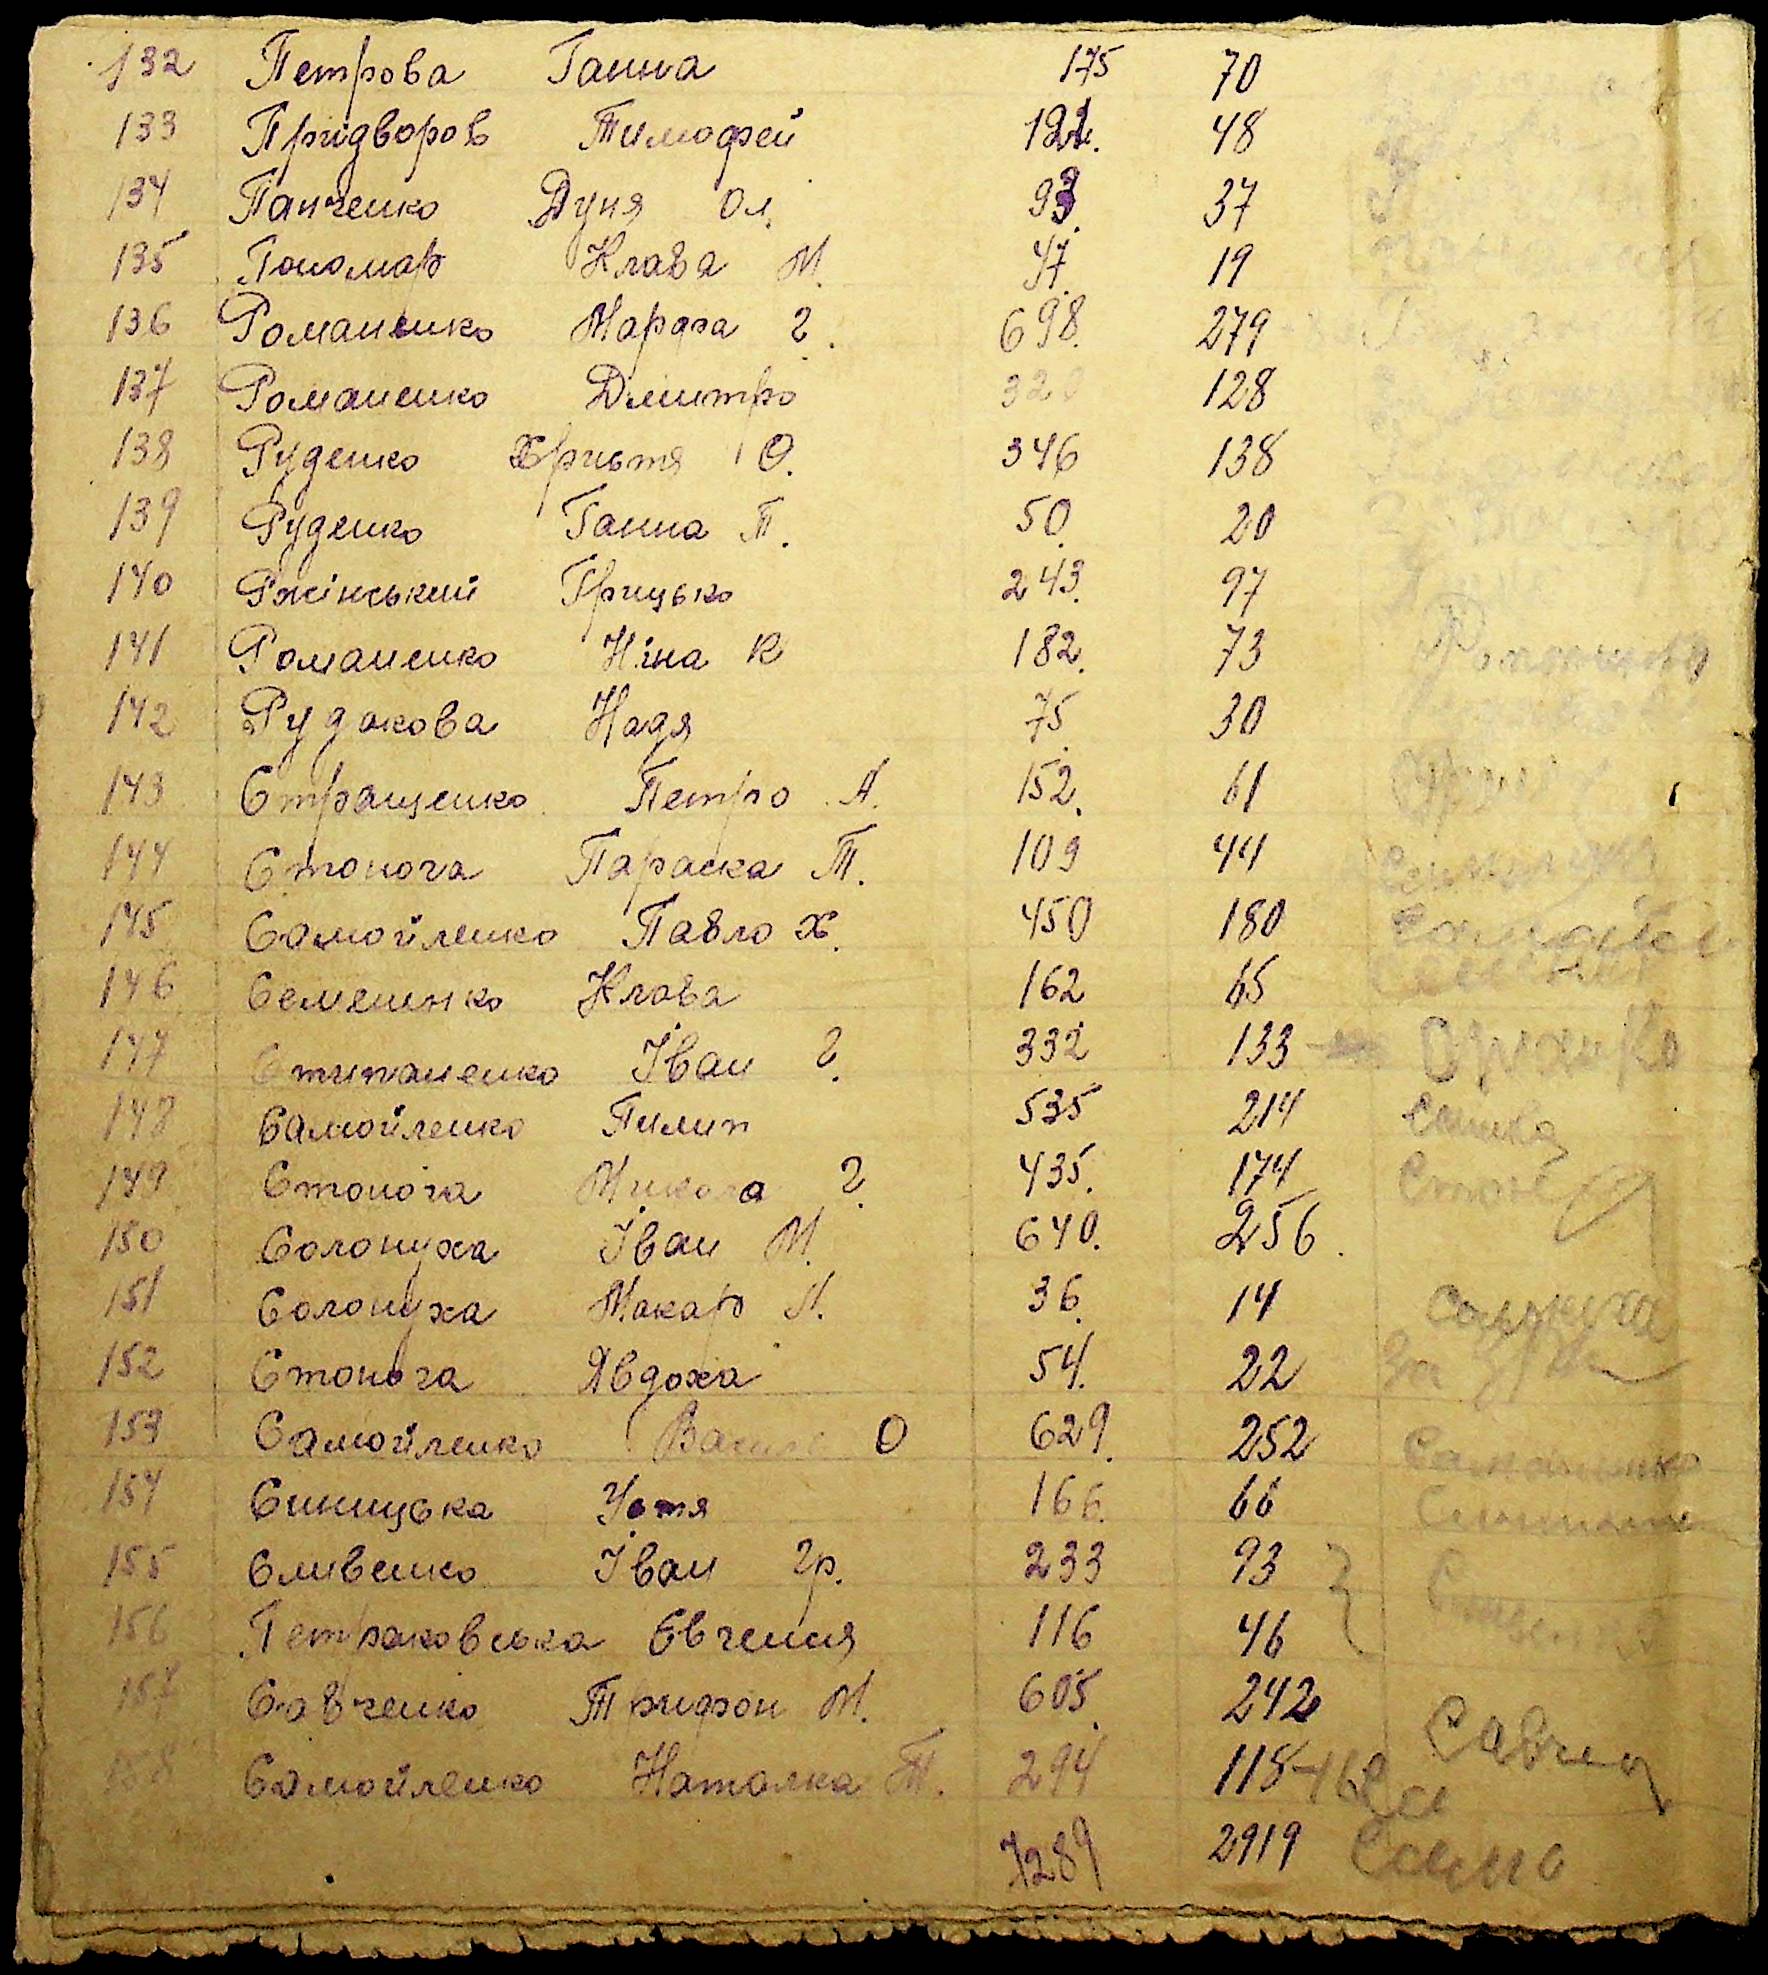 132 Петрова Ганна 175 70
133 Придворов Тимофей 122. 48
134 Панченко Дуня Ол. 93. 37
135 Пономар Клава М. 47. 19
136 Романенко Марфа Г. 698. 279
137 Романенко Дмитро 320 128
138 Руденко Христя О. 346 138
139 Руденко Ганна П. 50. 20
140 Ржінський Грицько 243. 97
141 Романенко Ніна К 182. 73 Романенко
142 Рудакова Надя 75. 30
143 Стращенко Петро А. 152. 61
144 Стонога Параска Т. 109 44
145 Самойленко Павло Х. 450 180
146 Семешнко Клава 162 65
147 Стипаненко Іван Г. 332 133
148 Самойленко Пилип 535 214
149 Стонога Микола Г. 435. 174
150 Солонуха Іван М. 640. 256.
151 Солонуха Макар П. 36. 14 Солонуха
152 Стонога Явдоха 54. 22 За
153 Самойленко Василь О 629. 252
154 Синицька Устя 166. 66
155 Сливенко Іван Гр. 233 93
156 Петраковська Євгения 116 46
157 Савченко Трифон М. 605. 242 Савчен
158 Самойленко Наталка Т. 294 118
7289 2919